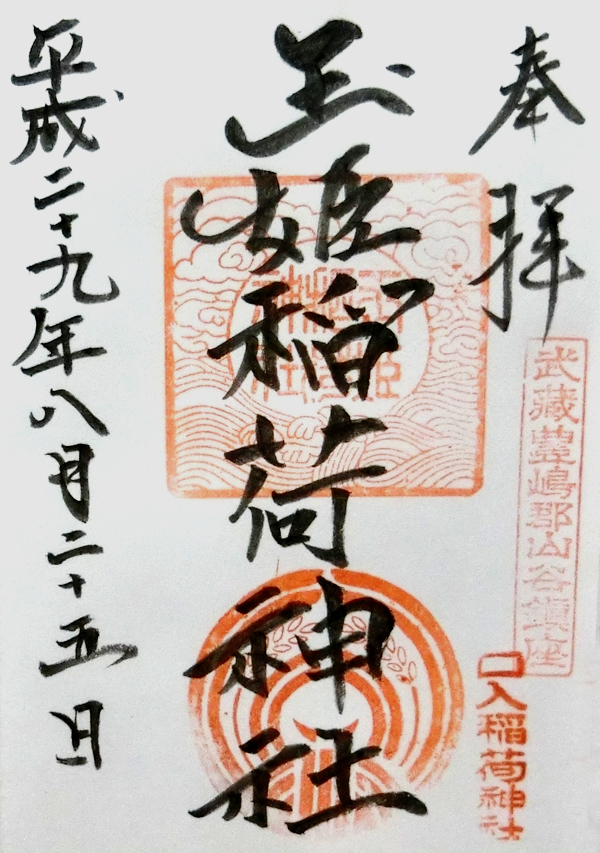 奉拝
武蔵豊嶋郡山谷鎮座
口入稲荷神社
玉姫稲荷神社
平成二十九年八月二十五日